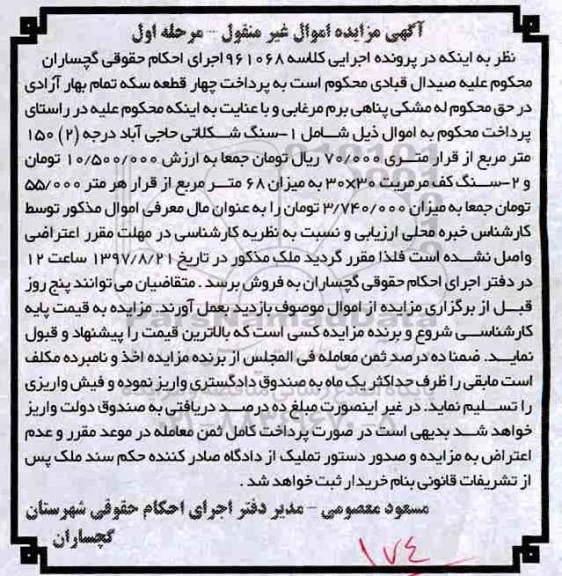 آگهی مزایده اموال غیر منقول - مرحله اول
نظر به اینکه در پرونده اجرایی کلاسه ۹۶۱۰۶۸اجرای احکام حقوقی گچساران
محکوم علیه صیدال قبادی محکوم است به پرداخت چهار قطعه سکه تمام بهار آزادی
در حق محکوم له مشکی پناهی برم مرغابی و با عنایت به اینکه محکوم علیه در راستای
پرداخت محکوم به اموال ذیل شامل ۱-سنگ شکلاتی حاجی آباد درجه (۲) ۱۵۰
متر مربع از قرار متری ۷۰/۰۰۰ ریال تومان جمعا به ارزش ۱۰/۵۰۰/۰۰۰ تومان
و ۲-سنگ کف مرمریت ۳۰×۳۰ به میزان ۶۸ متر مربع از قرار هر متر ۵۵/۰۰۰
تومان جمعا به میزان ۳/۷۴۰/۰۰۰ تومان را به عنوان مال معرفی اموال مذکور توسط
کارشناس خبره محلی ارزیابی و نسبت به نظریه کارشناسی در مهلت مقرر اعتراضی
واصل نشده است فلذا مقرر گردید ملک مذکور در تاریخ ۱۳۹۷/۸/۲۱ ساعت ۱۲
در دفتر اجرای احکام حقوقی گچساران به فروش برسد . متقاضیان می توانند پنج روز
قبل از برگزاری مزایده از اموال موصوف بازدید بعمل آورند. مزایده به قیمت پایه
کارشناسی شروع و برنده مزایده کسی است که بالاترین قیمت را پیشنهاد و قبول
نماید. ضمنا ده درصد ثمن معامله فی المجلس از برنده مزایده اخذ و نامبرده مکلف
است مابقی را ظرف حداکثر یک ماه به صندوق دادگستری واریز نموده و فیش واریزی
را تسلیم نماید. در غیر اینصورت مبلغ ده درصد دریافتی به صندوق دولت واریز
خواهد شد بدیهی است در صورت پرداخت کامل ثمن معامله در موعد مقرر و عدم
اعتراض به مزایده و صدور دستور تملیک از دادگاه صادر کننده حکم سند ملک پس
از تشریفات قانونی بنام خریدار ثبت خواهد شد .
مسعود معصومی - مدیر دفتر اجرای احکام حقوقی شهرستان
گچساران
۱۷۴